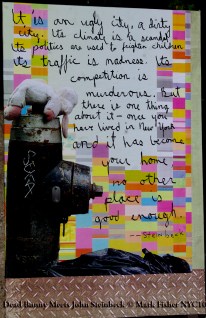 It is an ugly city, a dirty
city. Its climate is a scandal
Its politics are used to frighten children
Its traffic is madness. Its
competition is
murderous. but
there is one thing
about it - once you
have lived in New York
and it has become
your home
no other
place is
good enough.
--- Steinbeck
Dead Bunny Meets John Steinbeck © Mark Fisher NYC10